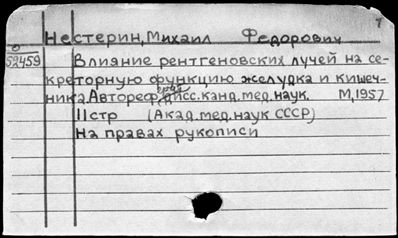 Нестерин, Михаил Федорович
52459 Влияние рентгеновских лучей на се-
креторную функцию желудка и кишеч-
ника. Автореф. дисс. канд. мед. наук. М, 1957
11стр (Акад. мед. наук СССР)
На правах рукописи